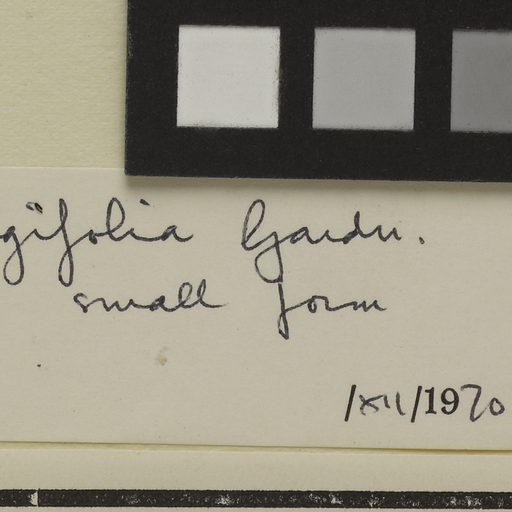 gifolia Gardn.
small form
/XII/1970